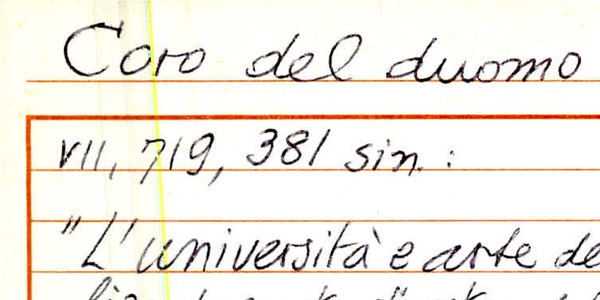 Coro del duomo
VII, 719, 381 sin. :
"L'università e arte de